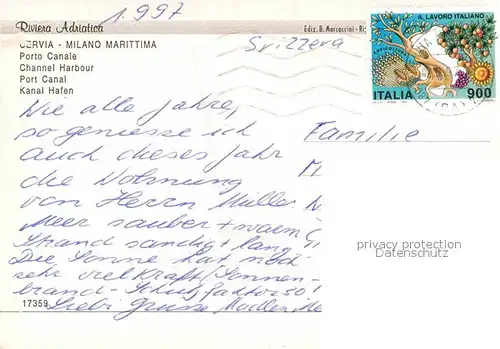 1.997
Riviera Adriatica
Ediz. B. Marcaccini - R
CERVIA - MILANO MARITTIMA
Porto Canale
Channel Harbour
Port Canal
Kanal Hafen
Svizzera
IL LAVORO ITALIANO
AGRICOLTURA
ITALIA 900
Wie alle Jahre,
so geniesse ich
auch dieses Jahr
die Wohnung
von Herrn Müller
Meer sauber + warm
Strand sandig + lang
Die Sonne hat noch
sehr viel Kraft / Sonnen-
brand-Schutzfaktor 30!
Liebi Grüsse
Familie
M
17359
privacy protection
Datenschutz